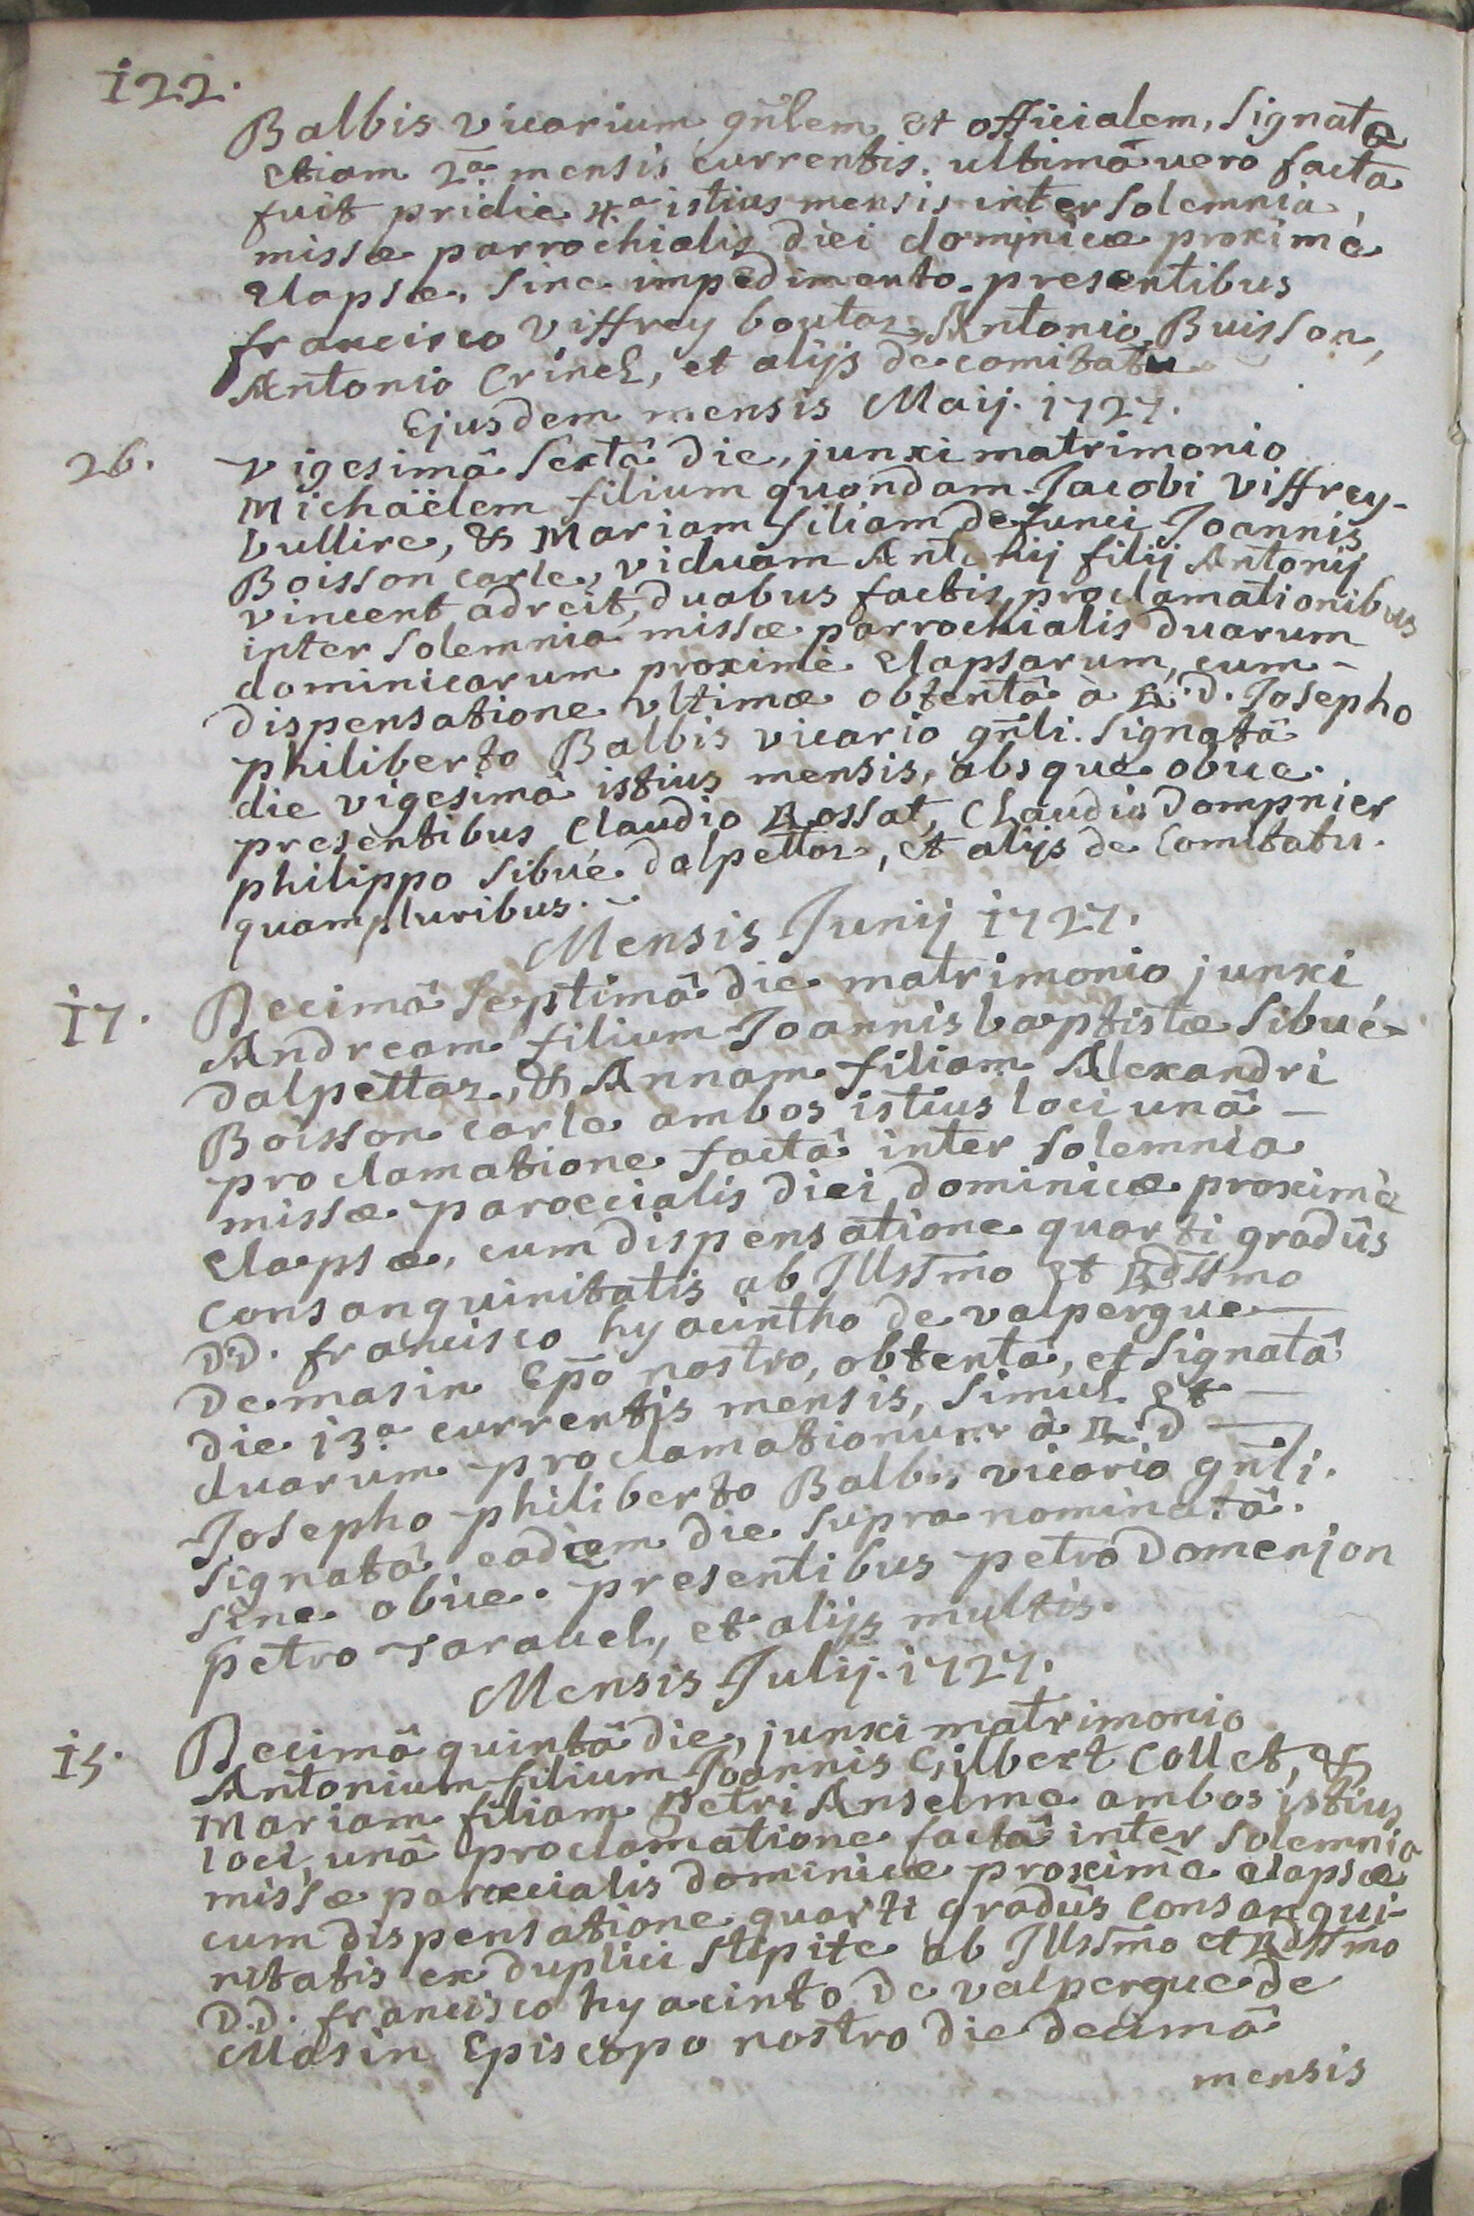 122.
Balbis vicarium gñlem et officialem, signata
etiam 2.ª mensis currentis. ultimâ vero facta
fuit pridie 4.ª istius mensis inter solemnia
missæ parrochialis diei dominicæ proximè
elapsæ, sine impedimento. presentibus
francisco Viffrey boutaz, Antonio Buisson,
Antonio Crinel, et alijs de comitatu
Ejusdem mensis Maij. 1727.
26. vigesimâ sextâ die, junxi matrimonio
Michäelem filium quondam Jacobi Viffrey-
bullire, & Mariam filiam defunci Joannis
Boisson carle, viduam Antonij filij Antonij
vincent adreit, duabus factis proclamationibus
inter solemnia missæ parrochialis duarum
dominicarum proximè elapsarum, cum -
dispensatione ultimæ obtentâ à R. d. Josepho
philiberto Balbis vicario gñli. signatâ
die vigesimâ istius mensis, absque obice.
presentibus Claudio Rossat, Claudio Dompnier
philippo Sibué dalpettaz, et alijs de comitatu.
quampluribus.
Mensis Junij 1727.
17. Decimâ septimâ die matrimonio junxi
Andream filium Joannis baptistæ Sibué-
dalpettaz, & Annam filiam Alexandri
Boisson carle ambos istius loci unâ -
proclamatione factâ inter solemnia
missæ paroccialis diei dominicæ proximè
elapsæ, cum dispensatione quarti gradûs
consanguinitatis ab Illsm̃o et Rdss̃mo
D.D. francisco hyacintho de valpergue
de masin Ep̃o nostro, obtentâ, et signatâ
die 13.ª currentis mensis, simul et
duarum proclamationum à R. D
Josepho philiberto Balbis vicario gñli.
signatâ eadem die supra nominatâ.
sine obice. presentibus petro Domenjon
petro ravavel, et alijs multis.
Mensis Julij. 1727.
15. Decimâ quintâ die, junxi matrimonio
Antonium filium Joannis Gilbert Collet, &
Mariam filiam Petri Anselme ambos istius
loci, unâ proclamatione factâ inter solemnia
missæ paroccialis dominicæ proximè elapsæ
cum dispensatione quarti gradûs consangui-
nitatis ex duplici stipite ab Illsm̃o et Rdss̃mo
D.D. francisco hyacinto de valpergue de
Masin Episcopo nostro die decimâ
mensis